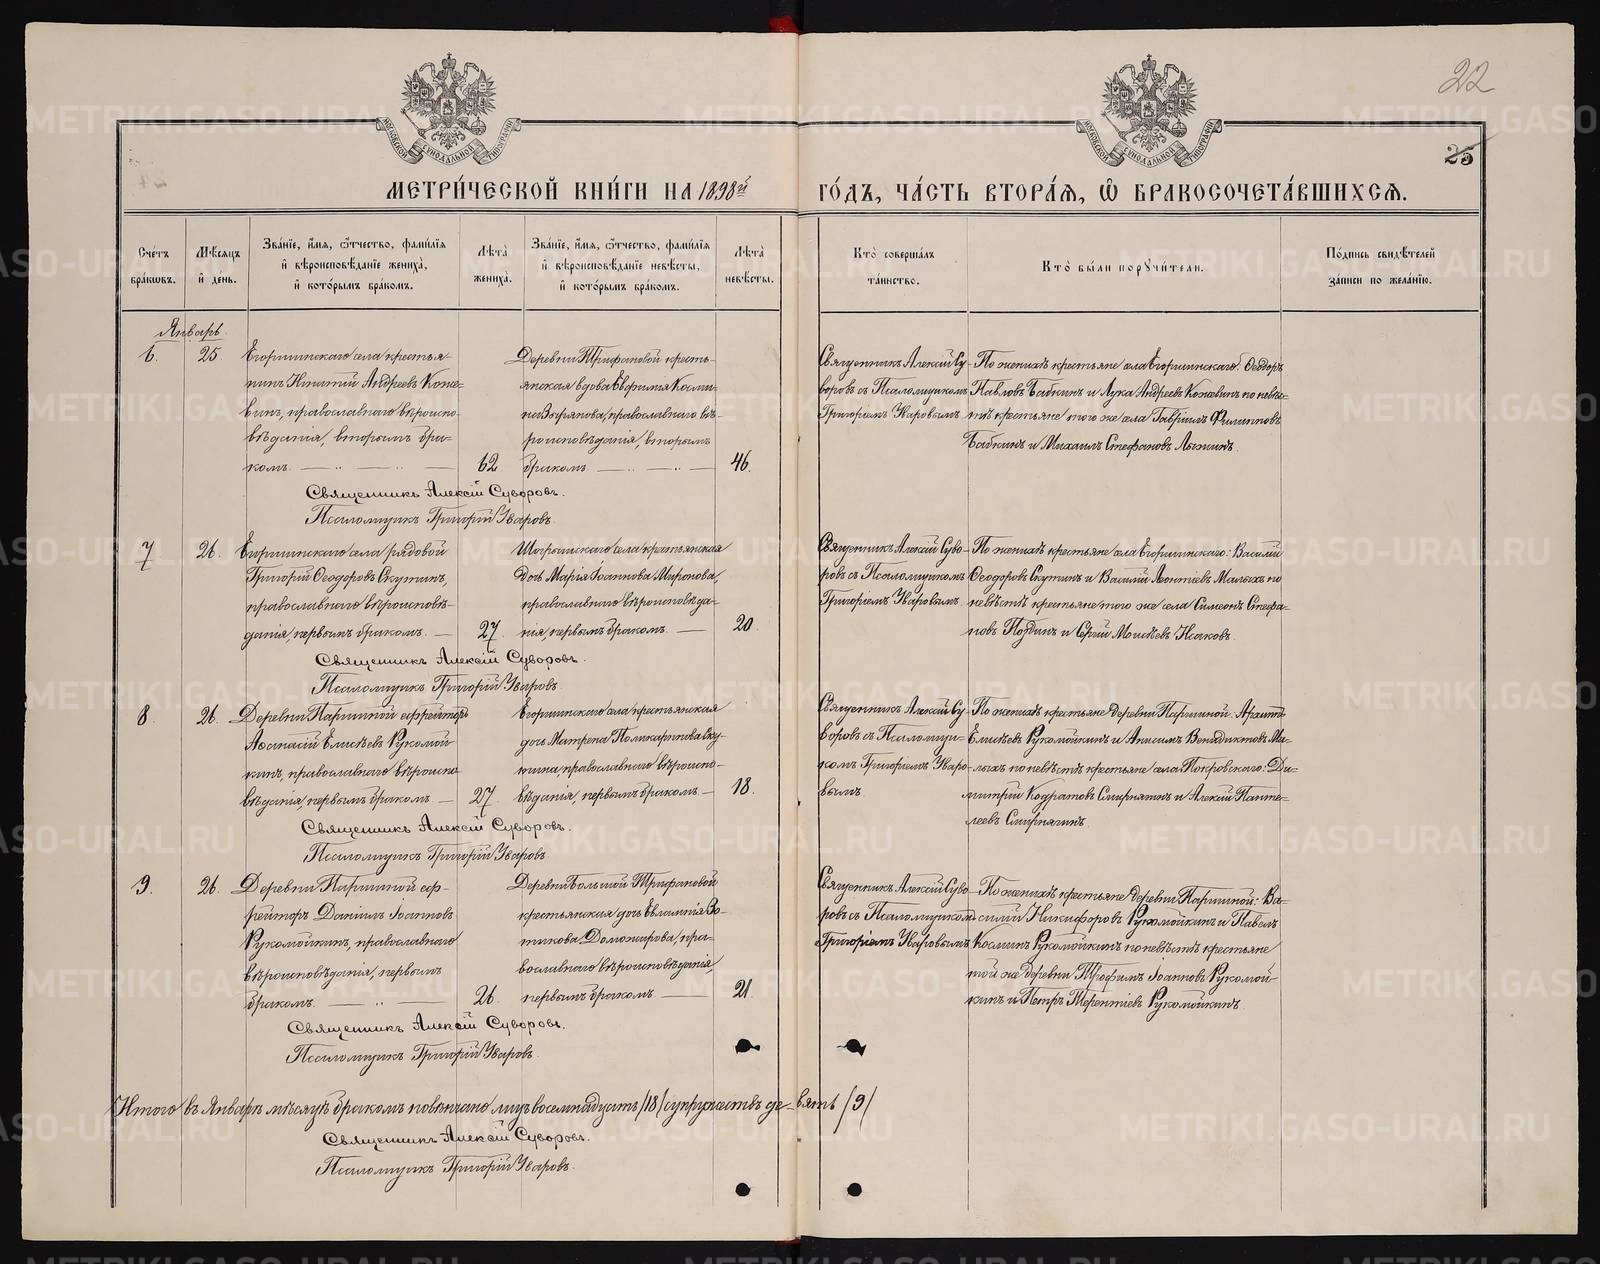 22
25
МОСКОВСКОЙ СѴНОДАЛЬНОЙ ТИПОГРАФІИ
МОСКОВСКОЙ СѴНОДАЛЬНОЙ ТИПОГРАФІИ
МЕТРИ́ЧЕСКОЙ КНИ́ГИ НА 1898й ГО́ДЪ, ЧА́СТЬ ВТОРА́Ѧ, Ѽ БРАКОСОЧЕТА́ВШИХСѦ.
Сче́тъ бра́кѡвъ.
Мѣ́сѧцъ и҆ де́нь.
Зва́нїе, и҆́мѧ, ѻ҆́тчество, фами́лїѧ и҆ вѣроисповѣ́данїе жениха̀, и҆ кото́рымъ бра́комъ.
Лѣ́та жениха̀.
Зва́нїе, и҆́мѧ, ѻ҆́тчество, фами́лїѧ и҆ вѣроисповѣ́данїе невѣ́сты, и҆ кото́рымъ бра́комъ.
Лѣ́та невѣ́сты.
Кто̀ соверша́лъ та́инство.
Кто̀ бы́ли порꙋчи́тели.
По́дпись свидѣ́телей за́писи по жела́нїю.
Январь
6. 25.
Егоршинскаго села крестья-
нинъ Игнатій Андреевъ Коже-
винъ, православнаго вѣроиспо-
вѣданія, вторымъ бра-
комъ. 62
Деревни Трифановой кресть-
янская вдова Евфимія Косми-
на Зырянова, православнаго вѣ-
роисповѣданія, вторымъ
бракомъ. 46.
Священникъ Алексій Су-
воровъ съ Псаломщикомъ
Григоріемъ Уваровымъ
По женихѣ крестьяне села Егоршинскаго: Ѳеодоръ
Павловъ Бабкинъ и Лука Андреевъ Кожевинъ по невѣс-
тѣ крестьяне того же села Гавріилъ Филипповъ
Бабкинъ и Михаилъ Стефановъ Лыжинъ.
Священникъ Алексій Суворовъ.
Псаломщикъ Григорій Уваровъ.
7 26.
Егоршинскаго села рядовой
Григорій Ѳеодоровъ Скутинъ,
православнаго вѣроисповѣ-
данія, первымъ бракомъ. 27.
села крестьянская
дочь Марія Іоаннова Миронова,
православнаго вѣроисповѣда-
нія, первымъ бракомъ. 20.
Священникъ Алексій Суво-
ровъ съ Псаломщикомъ
Григоріемъ Уваровымъ
По женихѣ крестьяне села Егоршинскаго: Василій
Ѳеодоровъ Скутинъ и Василій Леонтіевъ Малыхъ по
невѣстѣ крестьяне того же села Симеонъ Стефа-
новъ и Сергій Моисѣевъ Исаковъ.
Священникъ Алексій Суворовъ.
Псаломщикъ Григорій Уваровъ.
8. 26.
Деревни Паршиной ефрейторъ
Аѳанасій Елисѣевъ Рукомой-
кинъ, православнаго вѣроиспо-
вѣданія, первымъ бракомъ 27
Егоршинскаго села крестьянская
дочь Матрена Поликарпова Ску-
тина, православнаго вѣроиспо-
вѣданія, первымъ бракомъ. 18.
Священникъ Алексій Су-
воровъ съ Псаломщи-
комъ Григоріемъ Уваро-
вымъ
По женихѣ крестьяне деревни Паршиной: Архиппъ
Елисѣевъ Рукомойкинъ и Анисимъ Венедиктовъ Ма-
лыхъ по невѣстѣ крестьяне села Покровскаго: Ди-
митрій Кодратовъ Смирнягинъ и Алексій Панте-
леевъ Смирнягинъ.
Священникъ Алексій Суворовъ.
Псаломщикъ Григорій Уваровъ
9. 26.
Деревни Паршиной еф-
рейторъ Даніилъ Іоанновъ
Рукомойкинъ, православнаго
вѣроисповѣданія, первымъ
бракомъ. 26.
Деревни Большой Трифановой
крестьянская дочь Евлампія Зо-
тикова Доможирова, пра-
вославнаго вѣроисповѣданія,
первымъ бракомъ. 21
Священникъ Алексій Суво-
ровъ съ Псаломщикомъ
Григоріемъ Уваровымъ
По женихѣ крестьяне деревни Паршиной: Ва-
силій Никифоровъ Рукомойкинъ и Павелъ
Косминъ Рукомойкинъ по невѣстѣ крестьяне
той же деревни Трофимъ Іоанновъ Рукомой-
кинъ и Петръ Терентіевъ Рукомойкинъ.
Священникъ Алексій Суворовъ.
Псаломщикъ Григорій Уваровъ.
Итого въ Январѣ мѣсяцѣ бракомъ повѣнчано лицъ восемнадцать /18/ супружествъ де-вять /9/
Священникъ Алексій Суворовъ.
Псаломщикъ Григорій Уваровъ.
METRIKI.GASO-URAL.RU